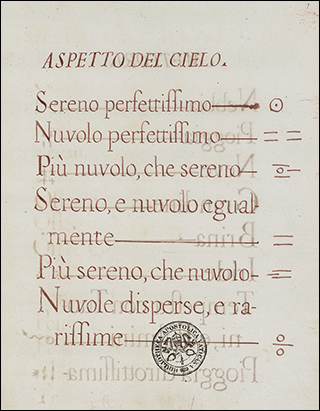 ASPETTO DEL CIELO.
Sereno perfettiſſimo
Nuvolo perfettiſſimo
Più nuvolo, che sereno
Sereno, e nuvolo egual-
mente
Più sereno, che nuvolo
Nuvole disperse, e ra-
riſſime